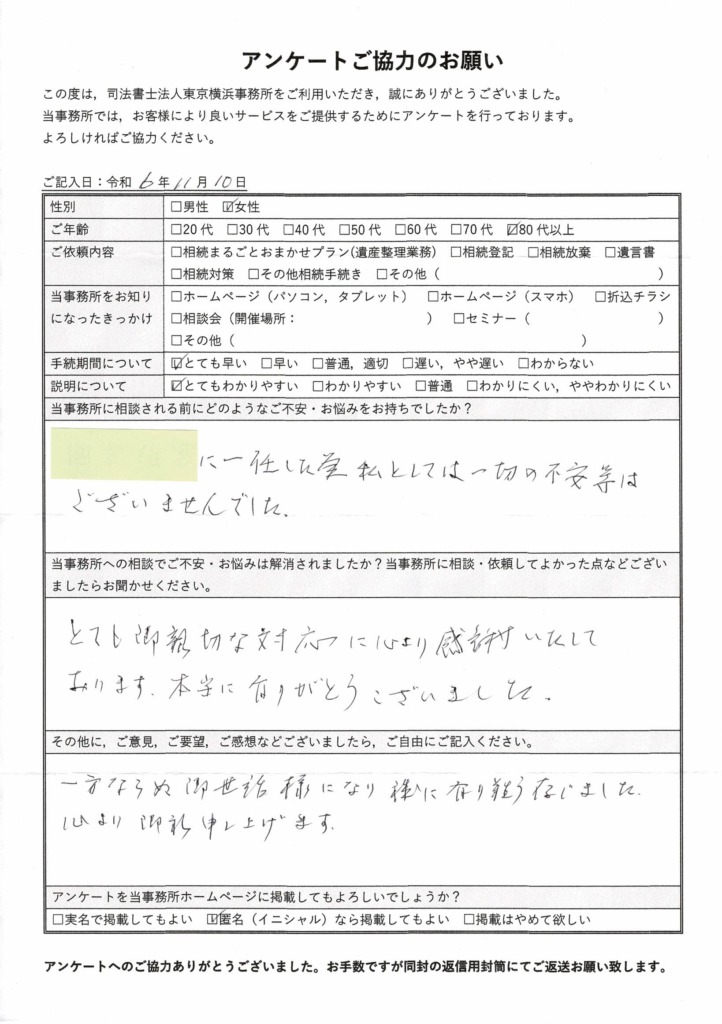 アンケートご協力のお願い
この度は，司法書士法人東京横浜事務所をご利用いただき，誠にありがとうございました。
当事務所では，お客様により良いサービスをご提供するためにアンケートを行っております。
よろしければご協力ください。
ご記入日：令和 6 年 11 月 10 日
性別 □男性 ☑女性
ご年齢 □20 代 □30 代 □40 代 □50 代 □60 代 □70 代 ☑80 代以上
ご依頼内容 □相続まるごとおまかせプラン(遺産整理業務) □相続登記 □相続放棄 □遺言書
□相続対策 □その他相続手続き □その他（ ）
当事務所をお知り □ホームページ（パソコン，タブレット） □ホームページ（スマホ） □折込チラシ
になったきっかけ □相談会（開催場所： ） □セミナー（ ）
□その他（ ）
手続期間について ☑とても早い □早い □普通，適切 □遅い，やや遅い □わからない
説明について ☑とてもわかりやすい □わかりやすい □普通 □わかりにくい，ややわかりにくい
当事務所に相談される前にどのようなご不安・お悩みをお持ちでしたか？
に一任した為 私としては一切の不安等は
ございませんでした.
当事務所への相談でご不安・お悩みは解消されましたか？当事務所に相談・依頼してよかった点などござい
ましたらお聞かせください。
とても御親切な対応に心より感謝いたして
おります. 本当に有りがとうございました.
その他に，ご意見，ご要望，ご感想などございましたら，ご自由にご記入ください。
一方ならぬ御世話様になり 誠に有り難う存じました.
心より御礼申し上げます.
アンケートを当事務所ホームページに掲載してもよろしいでしょうか？
□実名で掲載してもよい ☑匿名（イニシャル）なら掲載してもよい □掲載はやめて欲しい
アンケートへのご協力ありがとうございました。お手数ですが同封の返信用封筒にてご返送お願い致します。